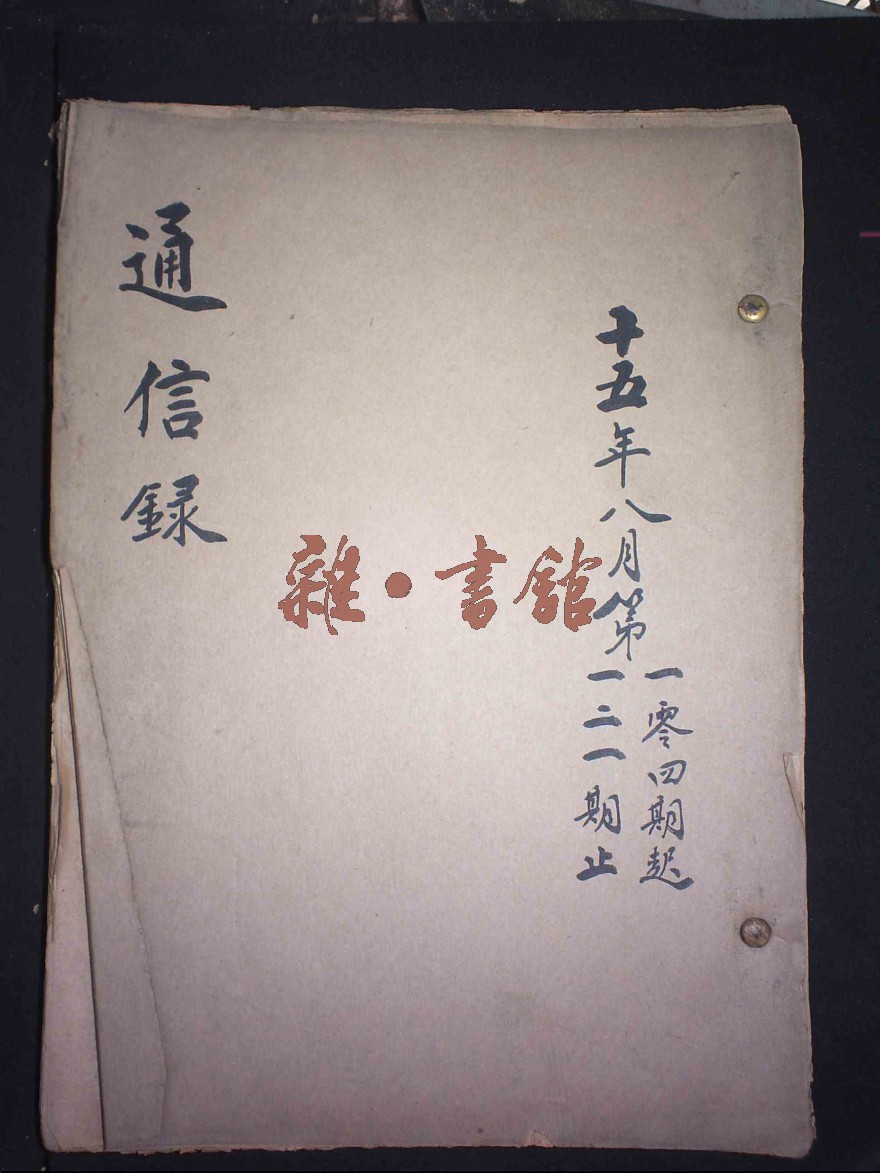 十五年八月第
一零四期起
一二一期止
通信録
雜·書館